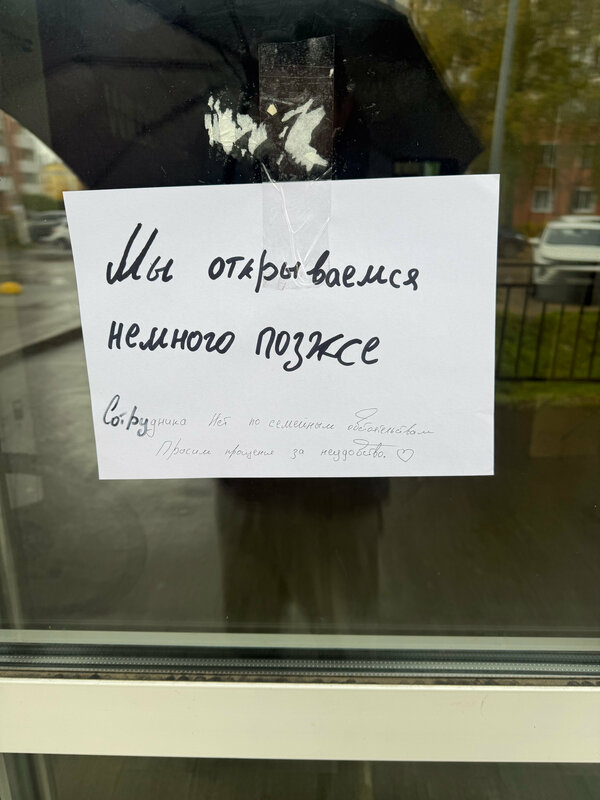 Мы открываемся
немного позже
Сотрудника нет по семейным обстоятельствам
Просим прощения за неудобство. ♡